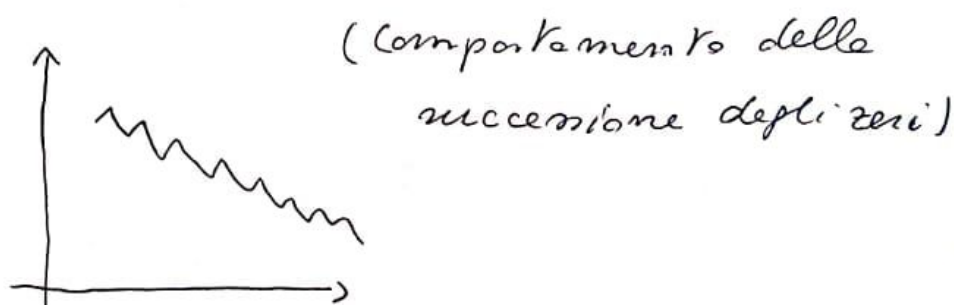 (Comportamento della
successione degli zeri)